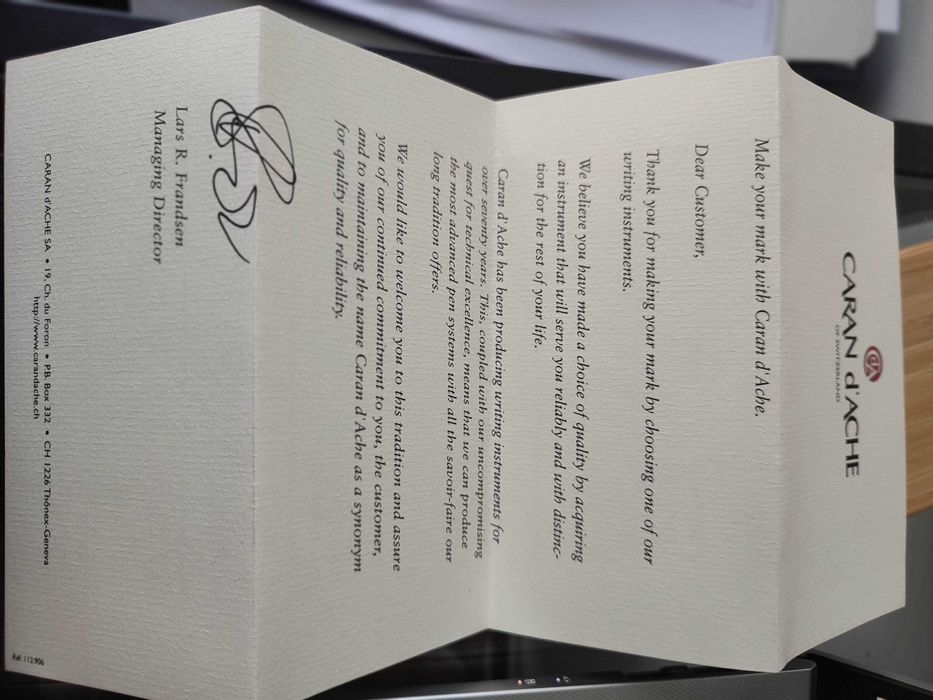 CARAN d'ACHE
OF SWITZERLAND
Make your mark with Caran d'Ache.
Dear Customer,
Thank you for making your mark by choosing one of our
writing instruments.
We believe you have made a choice of quality by acquiring
an instrument that will serve you reliably and with distinc-
tion for the rest of your life.
Caran d'Ache has been producing writing instruments for
over seventy years. This, coupled with our uncompromising
quest for technical excellence, means that we can produce
the most advanced pen systems with all the savoir-faire our
long tradition offers.
We would like to welcome you to this tradition and assure
you of our continued commitment to you, the customer,
and to maintaining the name Caran d'Ache as a synonym
for quality and reliability.
Lars R. Frandsen
Managing Director
CARAN d'ACHE SA • 19, Ch. du Foron • P.B. Box 332 • CH 1226 Thônex-Geneva
http://www.carandache.ch
Réf. 112.906